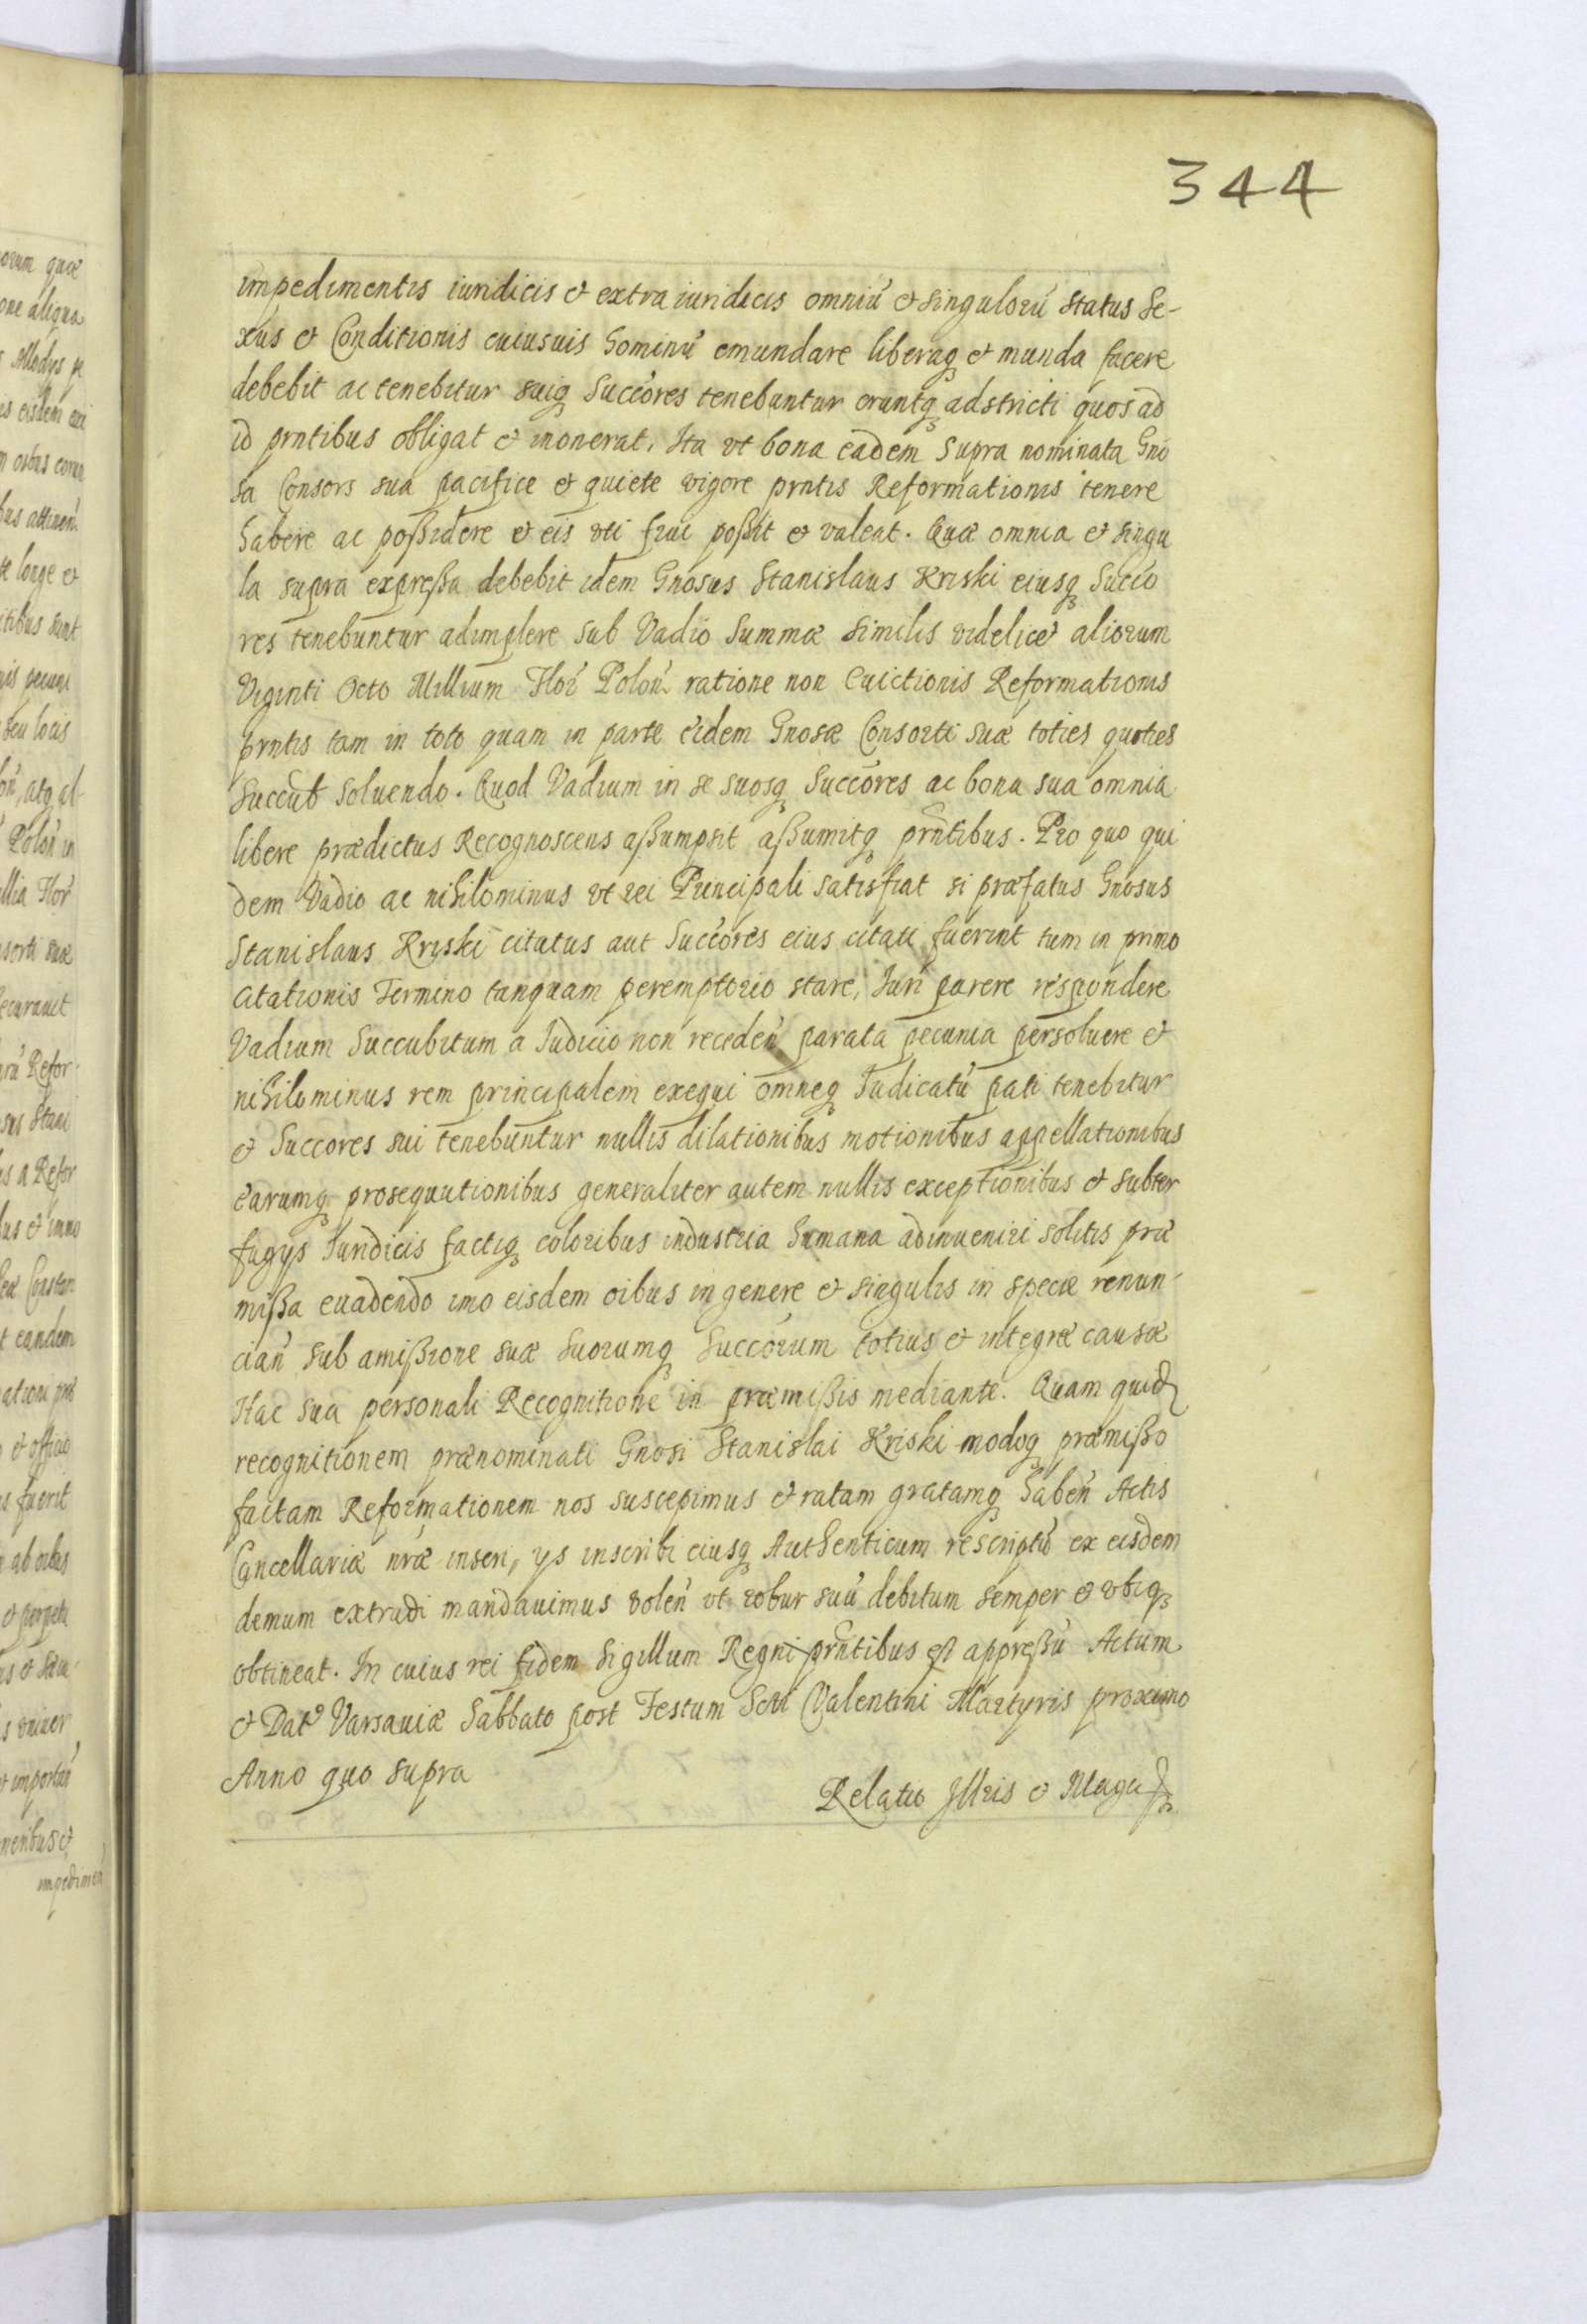 344
impedimentis iuridicis et extra iuridicis omniũ et singulorũ status Se-
xus et Conditionis cuiusuis hominũ emundare liberaq₃ et munda facere
debebit ac tenebitur suiq₃ Succores tenebuntur eruntq₃ adstricti quos ad
id prntibus obligat et inonerat. Ita vt bona eadem supra nominata Gno
sa Consors sua pacifice et quiete vigore prntis Reformationis tenere
habere ac possidere et eis vti frui possit et valeat. Quæ omnia et singu
la supra expressa debebit idem Gnosus Stanislaus Kriski eiusq₃ Succo
res tenebuntur adimplere sub Vadio Summæ similis videlicet aliorum
Viginti Octo Millium Flor̃ Poloñ ratione non Euictionis Reformationis
prntis tam in toto quam in parte eidem Gnosæ Consorti suæ toties quoties
succub̃ soluendo. Quod Vadium in se suosq₃ Succores ac bona sua omnia
libere prædictus Recognoscens assumpsit assumitq₃ prñtibus. Pro quo qui
dem Vadio ac nihilominus vt rei Principali satisfiat si præfatus Gnosus
Stanislaus Kryski citatus aut Succores eius citati fuerint tum in primo
Citationis Termino tanquam peremptorio stare, Iuri parere respondere
Vadium Succubitum a Iudicio non recedeñ parata pecunia persoluere et
nihilominus rem principalem exequi omneq₃ Iudicatũ pati tenebitur
et Succores sui tenebuntur nullis dilationibus motionibus appellationibus
earumq₃ prosequutionibus generaliter autem nullis exceptionibus et subter
fugys Iuridicis factiq₃ coloribus industria humana adinueniri solitis præ
missa euadendo imo eisdem oibus in genere et singulis in specie renun-
ciañ sub amissione suæ suorumq₃ Succorum totius et integræ causæ
Hac sua personali Recognitione in præmissis mediante. Quam quid
recognitionem prænominati Gnosi Stanislai Kriski modoq₃ præmisso
factam Reformationem nos suscepimus et ratam gratamq₃ habeñ Actis
Cancellariæ nræ inseri, ys inscribi eiusq₃ Authenticum rescriptũ ex eisdem
demum extradi mandauimus voleñ vt robur suũ debitum semper et vbiq₃
obtineat. In cuius rei fidem Sigillum Regni prñtibus est appressũ Actum
et Dat̃ Varsauiæ Sabbato post Festum Scti Valentini Martyris proximo
Anno quo supra
Relatio Illris et Magci